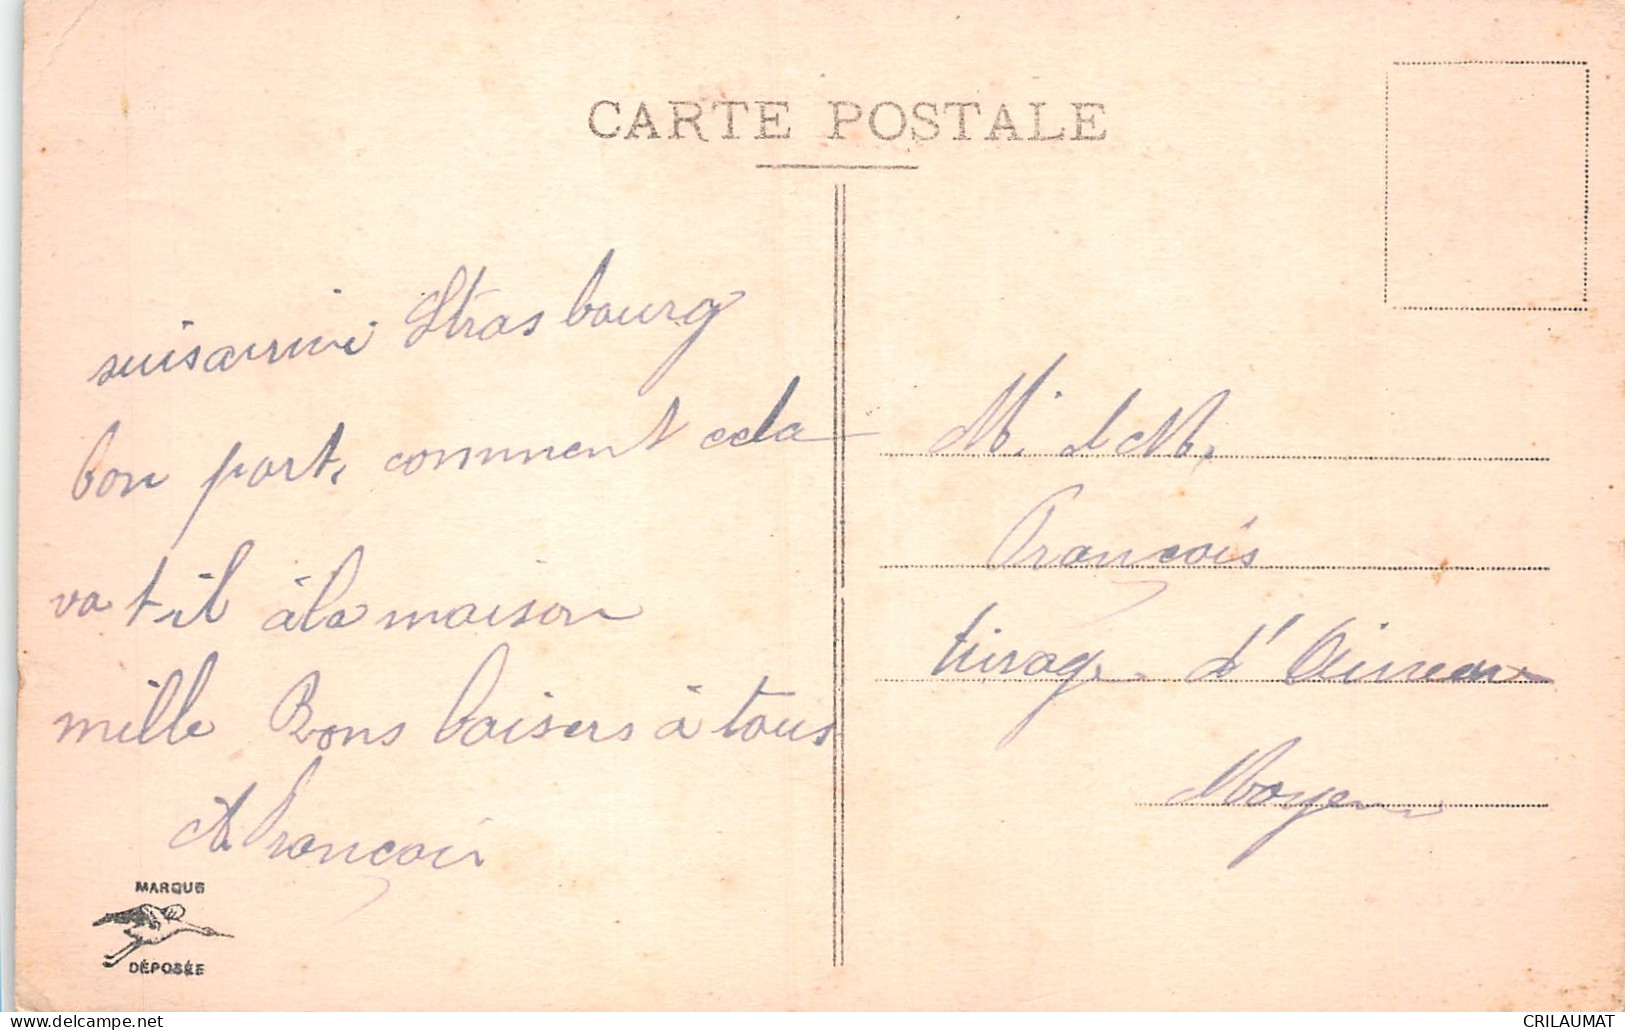 CARTE POSTALE
suis arrivé Strasbourg
bon port, comment cela
va t-il à la maison
mille Bons baisers à tous
A François
MARQUE
DÉPOSÉE
M. et M.
François
tirage d'
Moyen
CRILAUMAT
www.delcampe.net